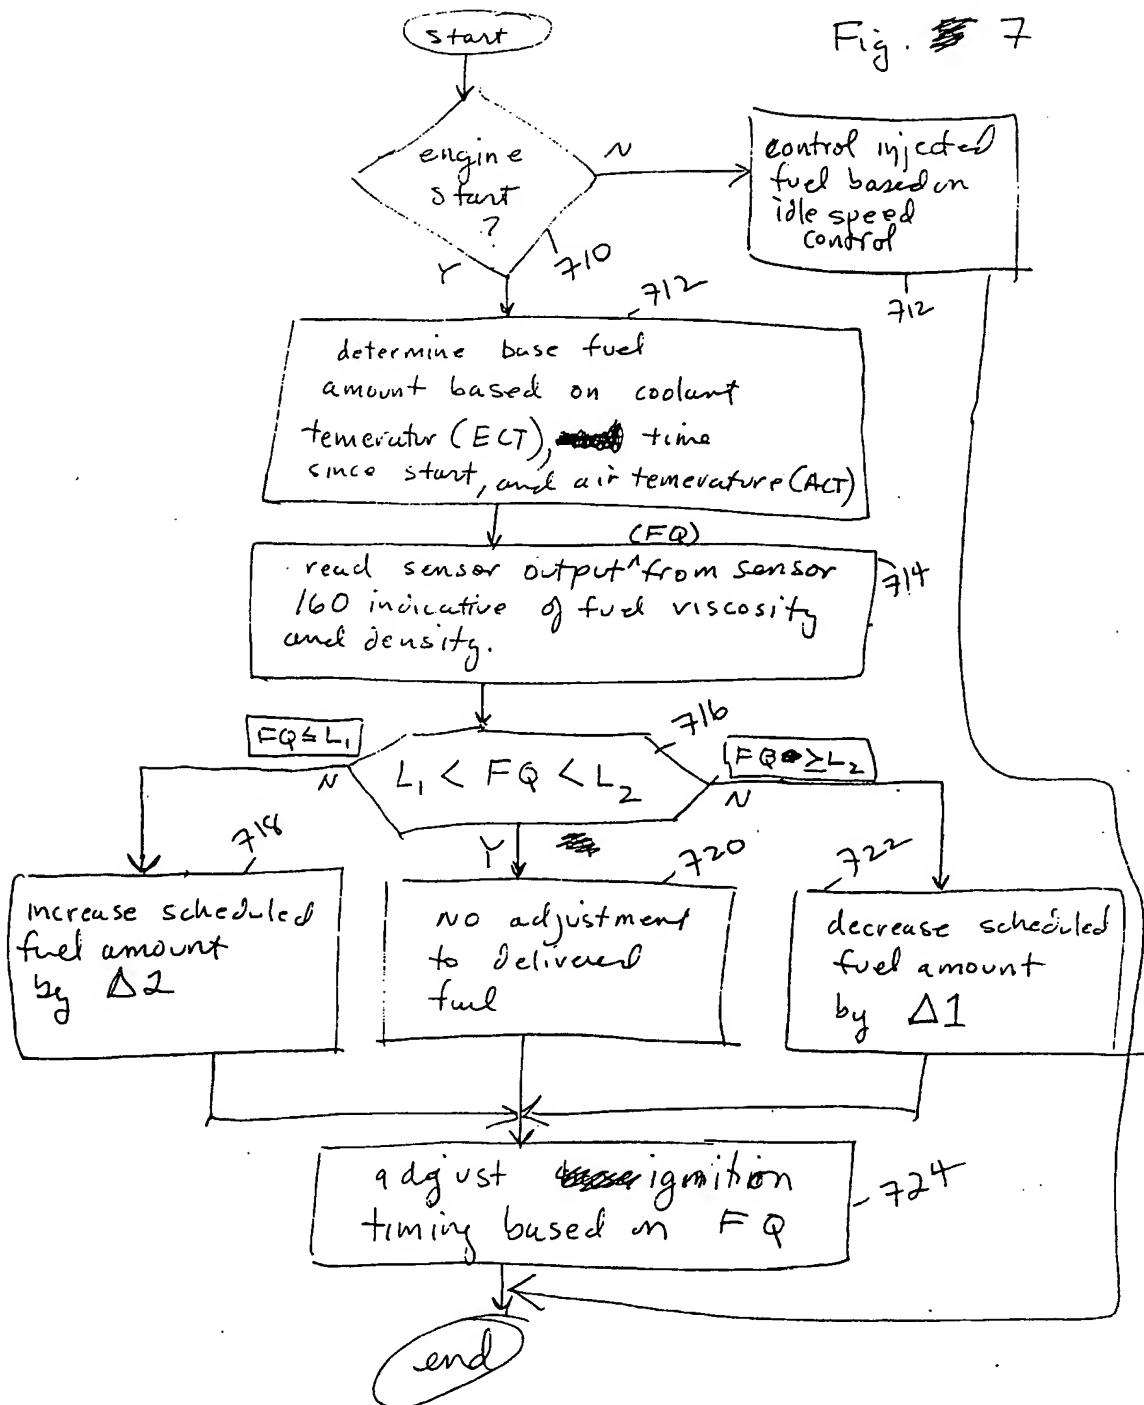 start
Fig. 7
engine
start
?
N
Y
710
control injected
fuel based on
idle speed
control
712
712
determine base fuel
amount based on coolant
temeratur (ECT), time
since start, and air temerature (ACT)
(FQ)
read sensor output ^ from sensor
160 indicative of fuel viscosity
and density.
714
FQ ≤ L1
N
L1 < FQ < L2
716
FQ ≥ L2
N
Y
718
increase scheduled
fuel amount
by Δ2
720
NO adjustment
to delivered
fuel
722
decrease scheduled
fuel amount
by Δ1
adjust ignition
timing based on FQ
724
end